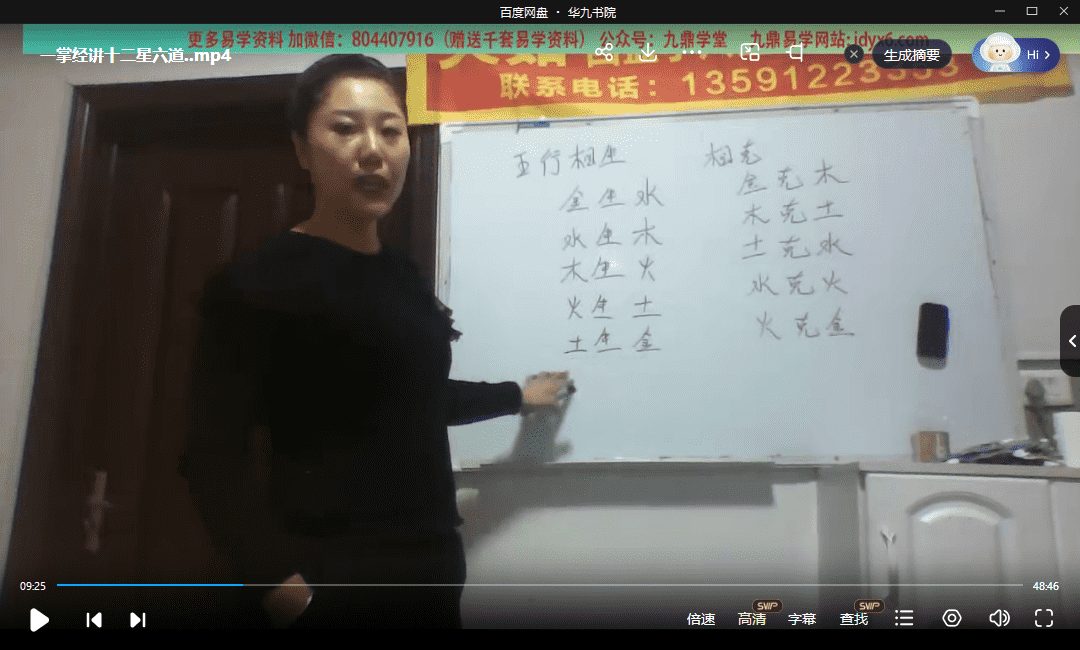 百度网盘 · 华九书院
更多易学资料 加微信：804407916（赠送千套易学资料） 公众号：九鼎学堂 九鼎易学网站:jdyx6.com
一掌经讲十二星六道..mp4
生成摘要
Hi
联系电话：13591223353
五行相生
金生水
水生木
木生火
火生土
土生金
相克
金克木
木克土
土克水
水克火
火克金
09:25
48:46
倍速
高清
SVIP
字幕
查找
SVIP